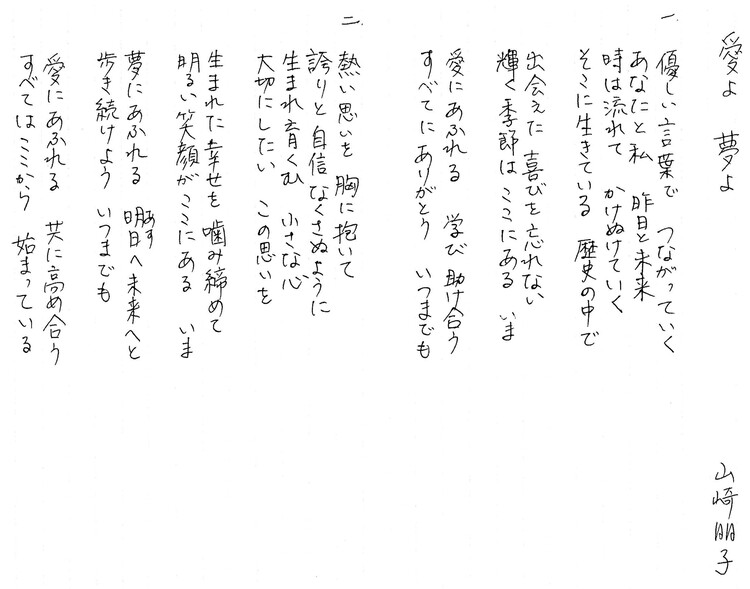 愛よ 夢よ
山崎朋子
一、
優しい言葉で つながっていく
あなたと私 昨日と未来
時は流れて かけぬけていく
そこに生きている 歴史の中で
出会えた 喜びを忘れない
輝く季節は ここにある いま
愛にあふれる 学び 助け合う
すべてに ありがとう いつまでも
二、
熱い思いを 胸に抱いて
誇りと自信 なくさぬように
生まれ育くむ 小さな心
大切にしたい この思いを
生まれた幸せを 噛み締めて
明るい笑顔が ここにある いま
夢にあふれる 明日(あす)へ未来へと
歩き続けよう いつまでも
愛にあふれる 共に高め合う
すべてはここから 始まっている